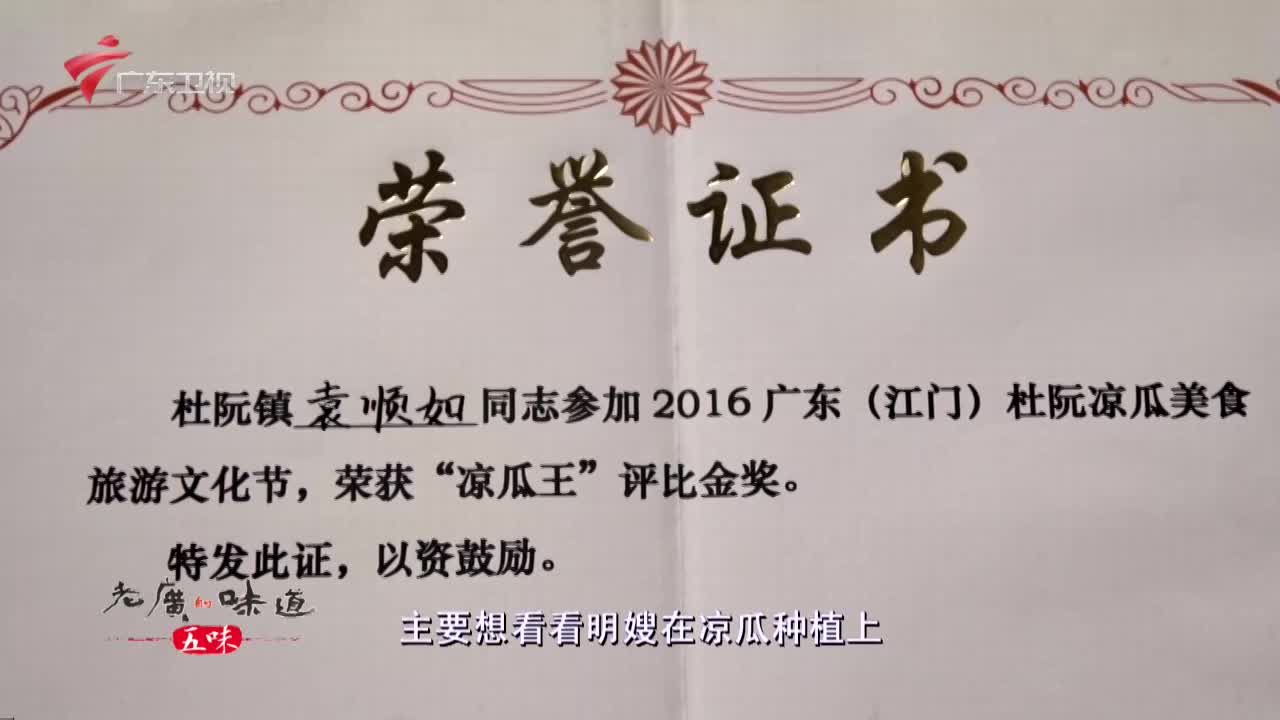 广东卫视
荣誉证书
杜阮镇袁顺如同志参加2016广东（江门）杜阮凉瓜美食
旅游文化节，荣获“凉瓜王”评比金奖。
特发此证，以资鼓励。
老廣的味道
五味
主要想看看明嫂在凉瓜种植上